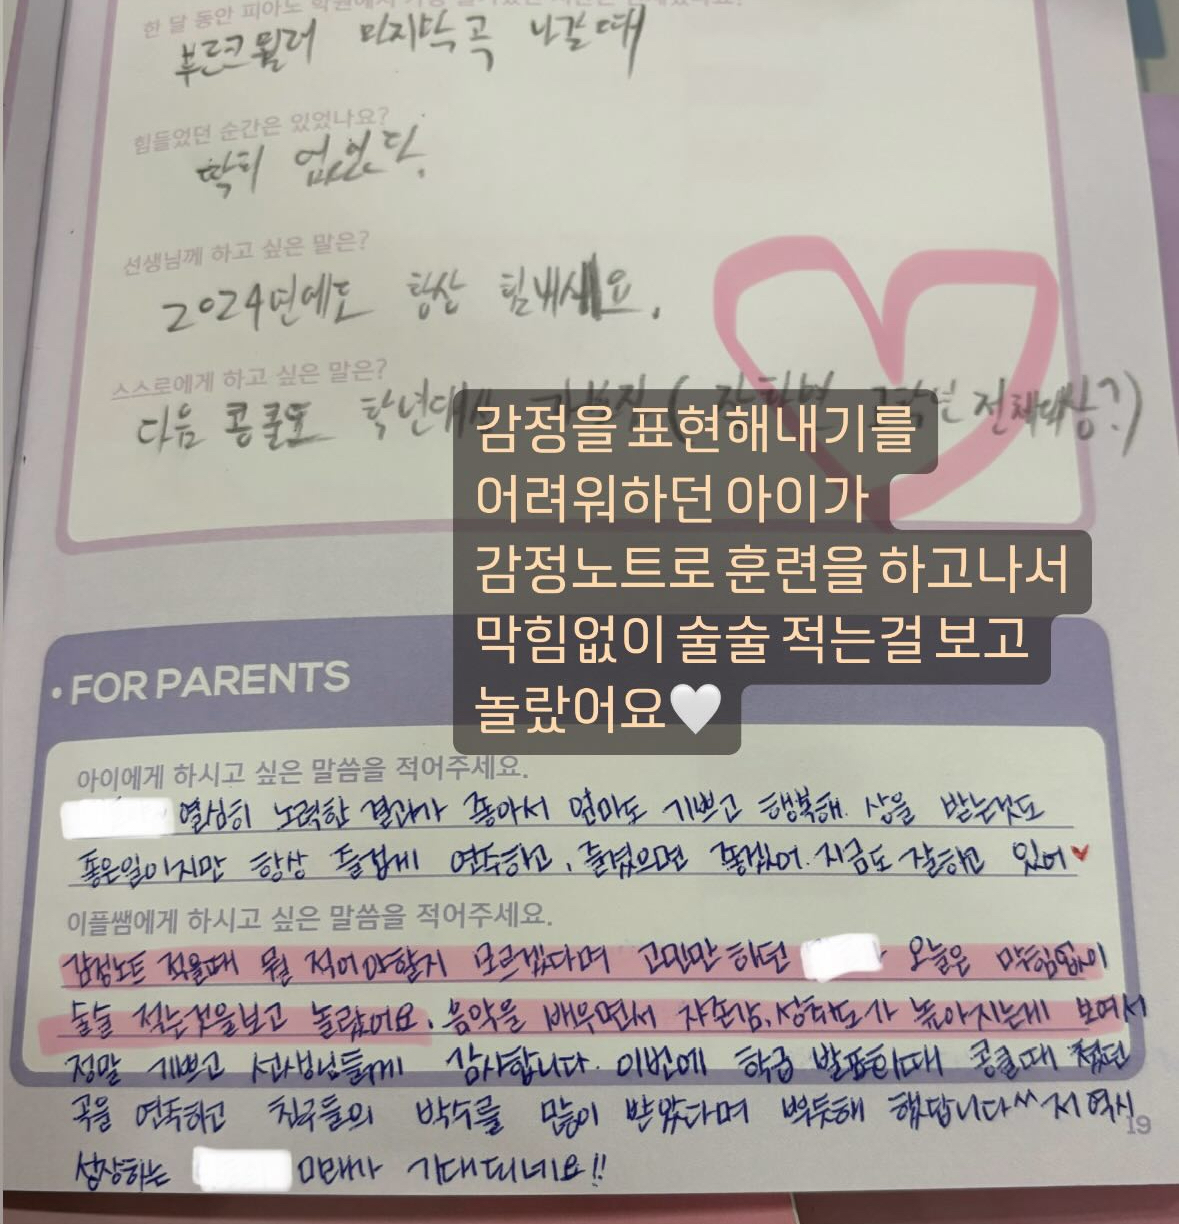 한 달 동안 피아노 학원에서 가장
부르크뮐러 마지막 곡 나갈 때
힘들었던 순간은 있었나요?
딱히 없었다.
선생님께 하고 싶은 말은?
2024년에도 항상 힘내세요.
스스로에게 하고 싶은 말은?
다음 콩쿨도 학년대상 전체대상?)
감정을 표현해내기를
어려워하던 아이가
감정노트로 훈련을 하고나서
막힘없이 술술 적는걸 보고
놀랐어요🤍
• FOR PARENTS
아이에게 하시고 싶은 말씀을 적어주세요.
열심히 노력한 결과가 좋아서 엄마도 기쁘고 행복해. 상을 받는것도
좋은일이지만 항상 즐겁게 연주하고, 즐겼으면 좋겠어. 지금도 잘하고 있어♥
이플쌤에게 하시고 싶은 말씀을 적어주세요.
감정노트 적을때 뭘 적어야할지 모르겠다며 고민만 하던 오늘은 막힘없이
술술 적는것을보고 놀랐어요. 음악을 배우면서 자존감, 성취도가 높아지는게 보여서
정말 기쁘고 선생님들께 감사합니다. 이번에 학급 발표회때 콩쿨때 쳤던
곡을 연주하고 친구들의 박수를 많이 받았다며 뿌듯해 했답니다^^ 저 역시
19
성장하는 미래가 기대되네요!!